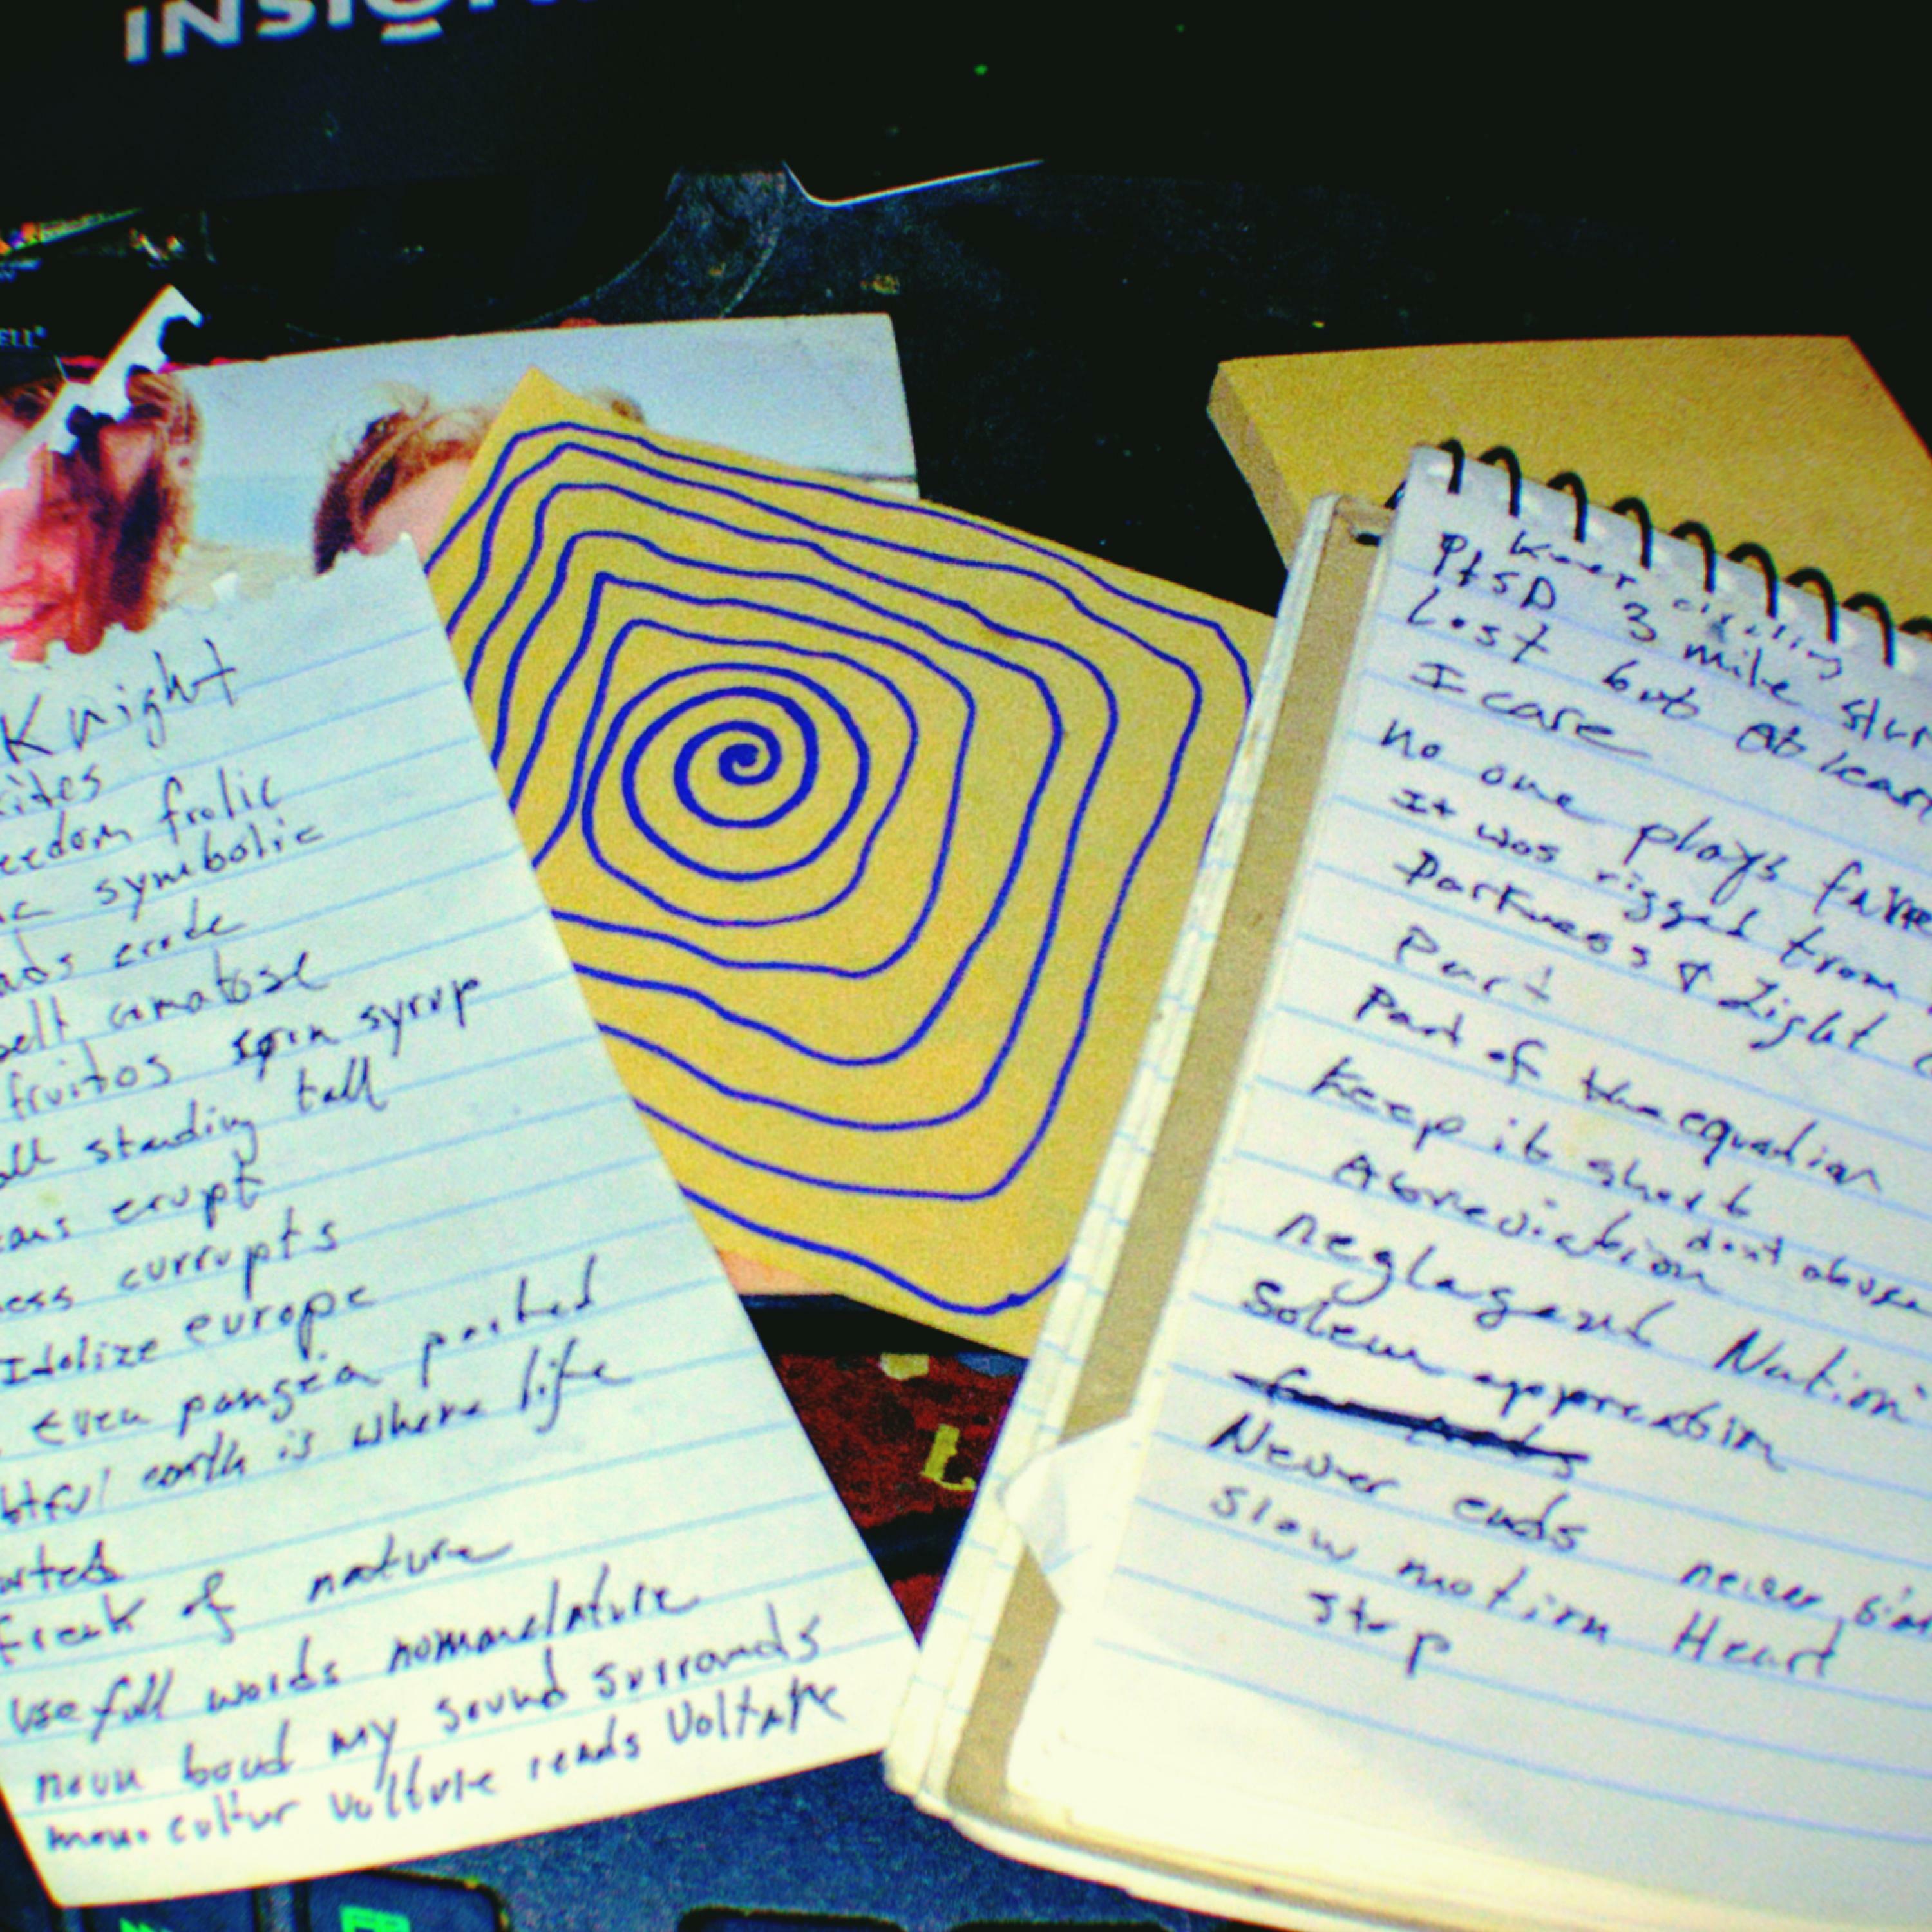 INSIGN
ELL
Knight
kites
eedom frolic
symbolic
ads erode
pelt comatose
fruitos corn syrup
all standing tall
eans erupt
ess currupts
Idolize europe
even pangea parted
btful earth is where life
arted
freak of nature
usefull words nomanclature
noun boud my sound surrounds
mono cultur vulture reads Voltare
Ptsd 3 mile
Lost but at
I care
no one plays
It was rigged from
Darkness & Light
Part
Part of the equation
Keep it short
dont abuse
Abreviation
neglagent Nation
Solem appreation
Never ends never
slow motion Heart
stop